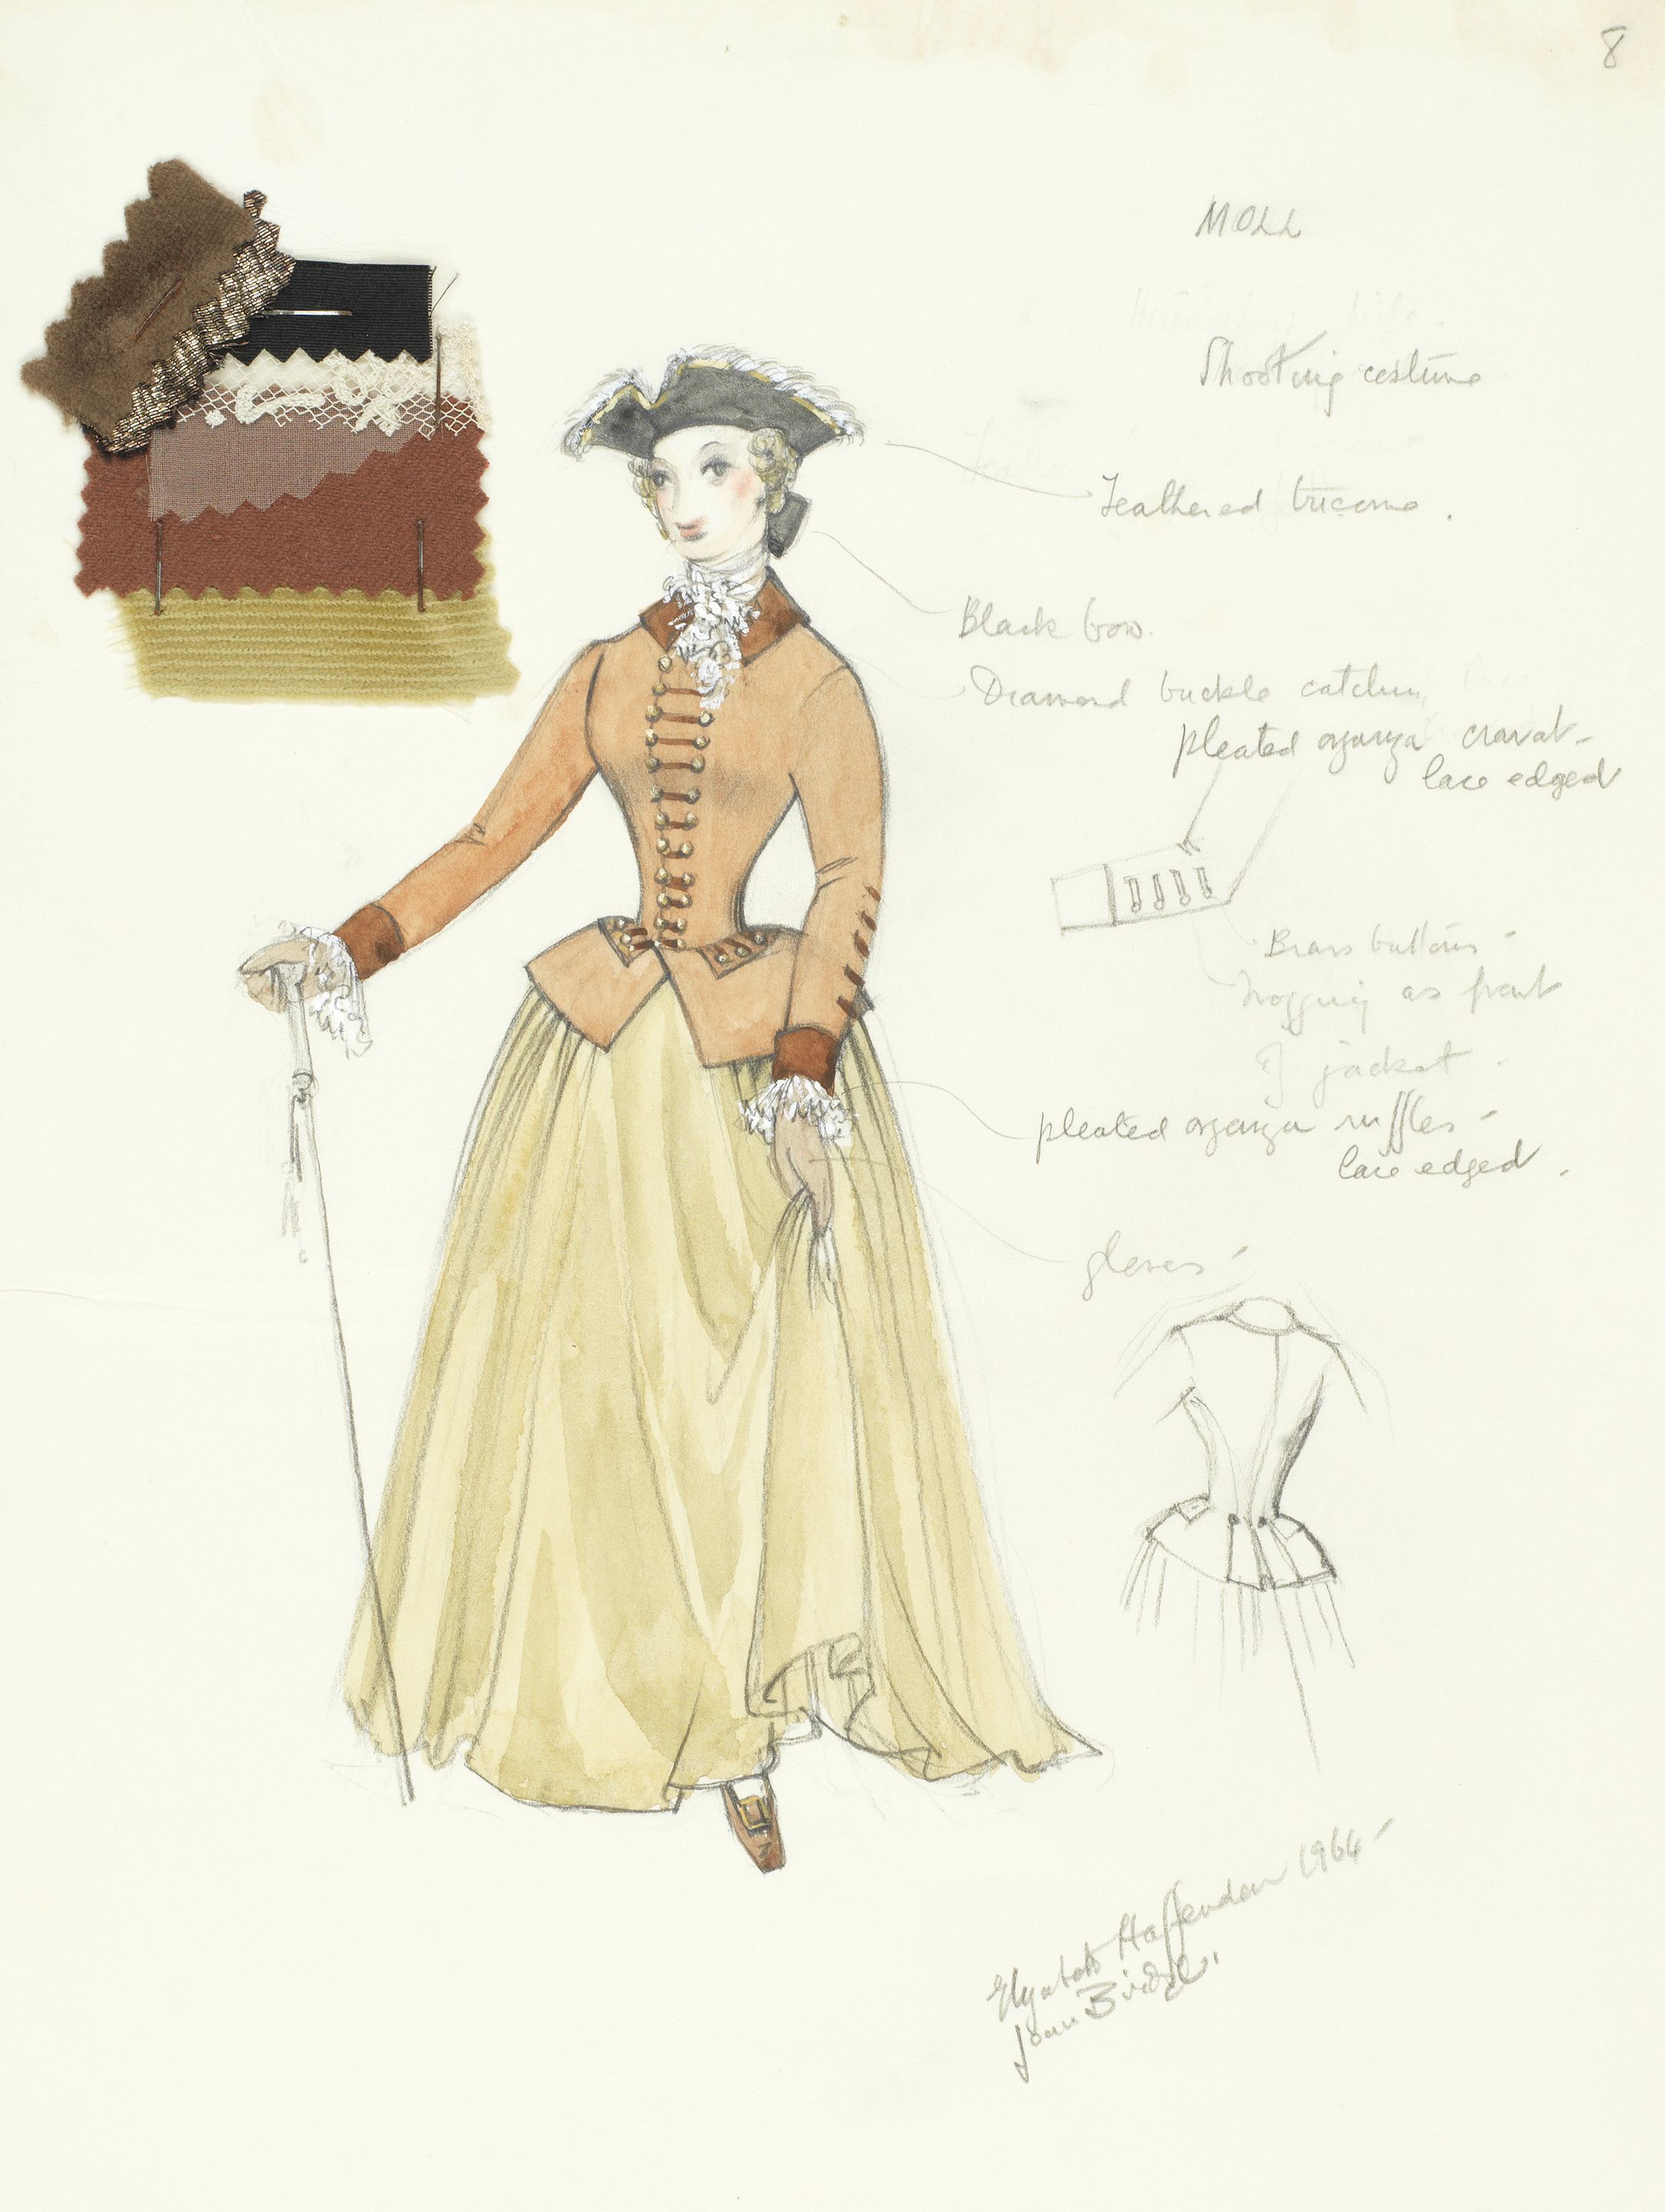 8
MOLL
Shooting costume
Feathered tricorne.
Black bow.
Diamond buckle catching
pleated organza cravat -
lace edged
Brass buttons -
frogging as front
of jacket -
pleated organza ruffles -
lace edged.
gloves -
Elizabeth Haffenden 1964 -
Joan Bridge.